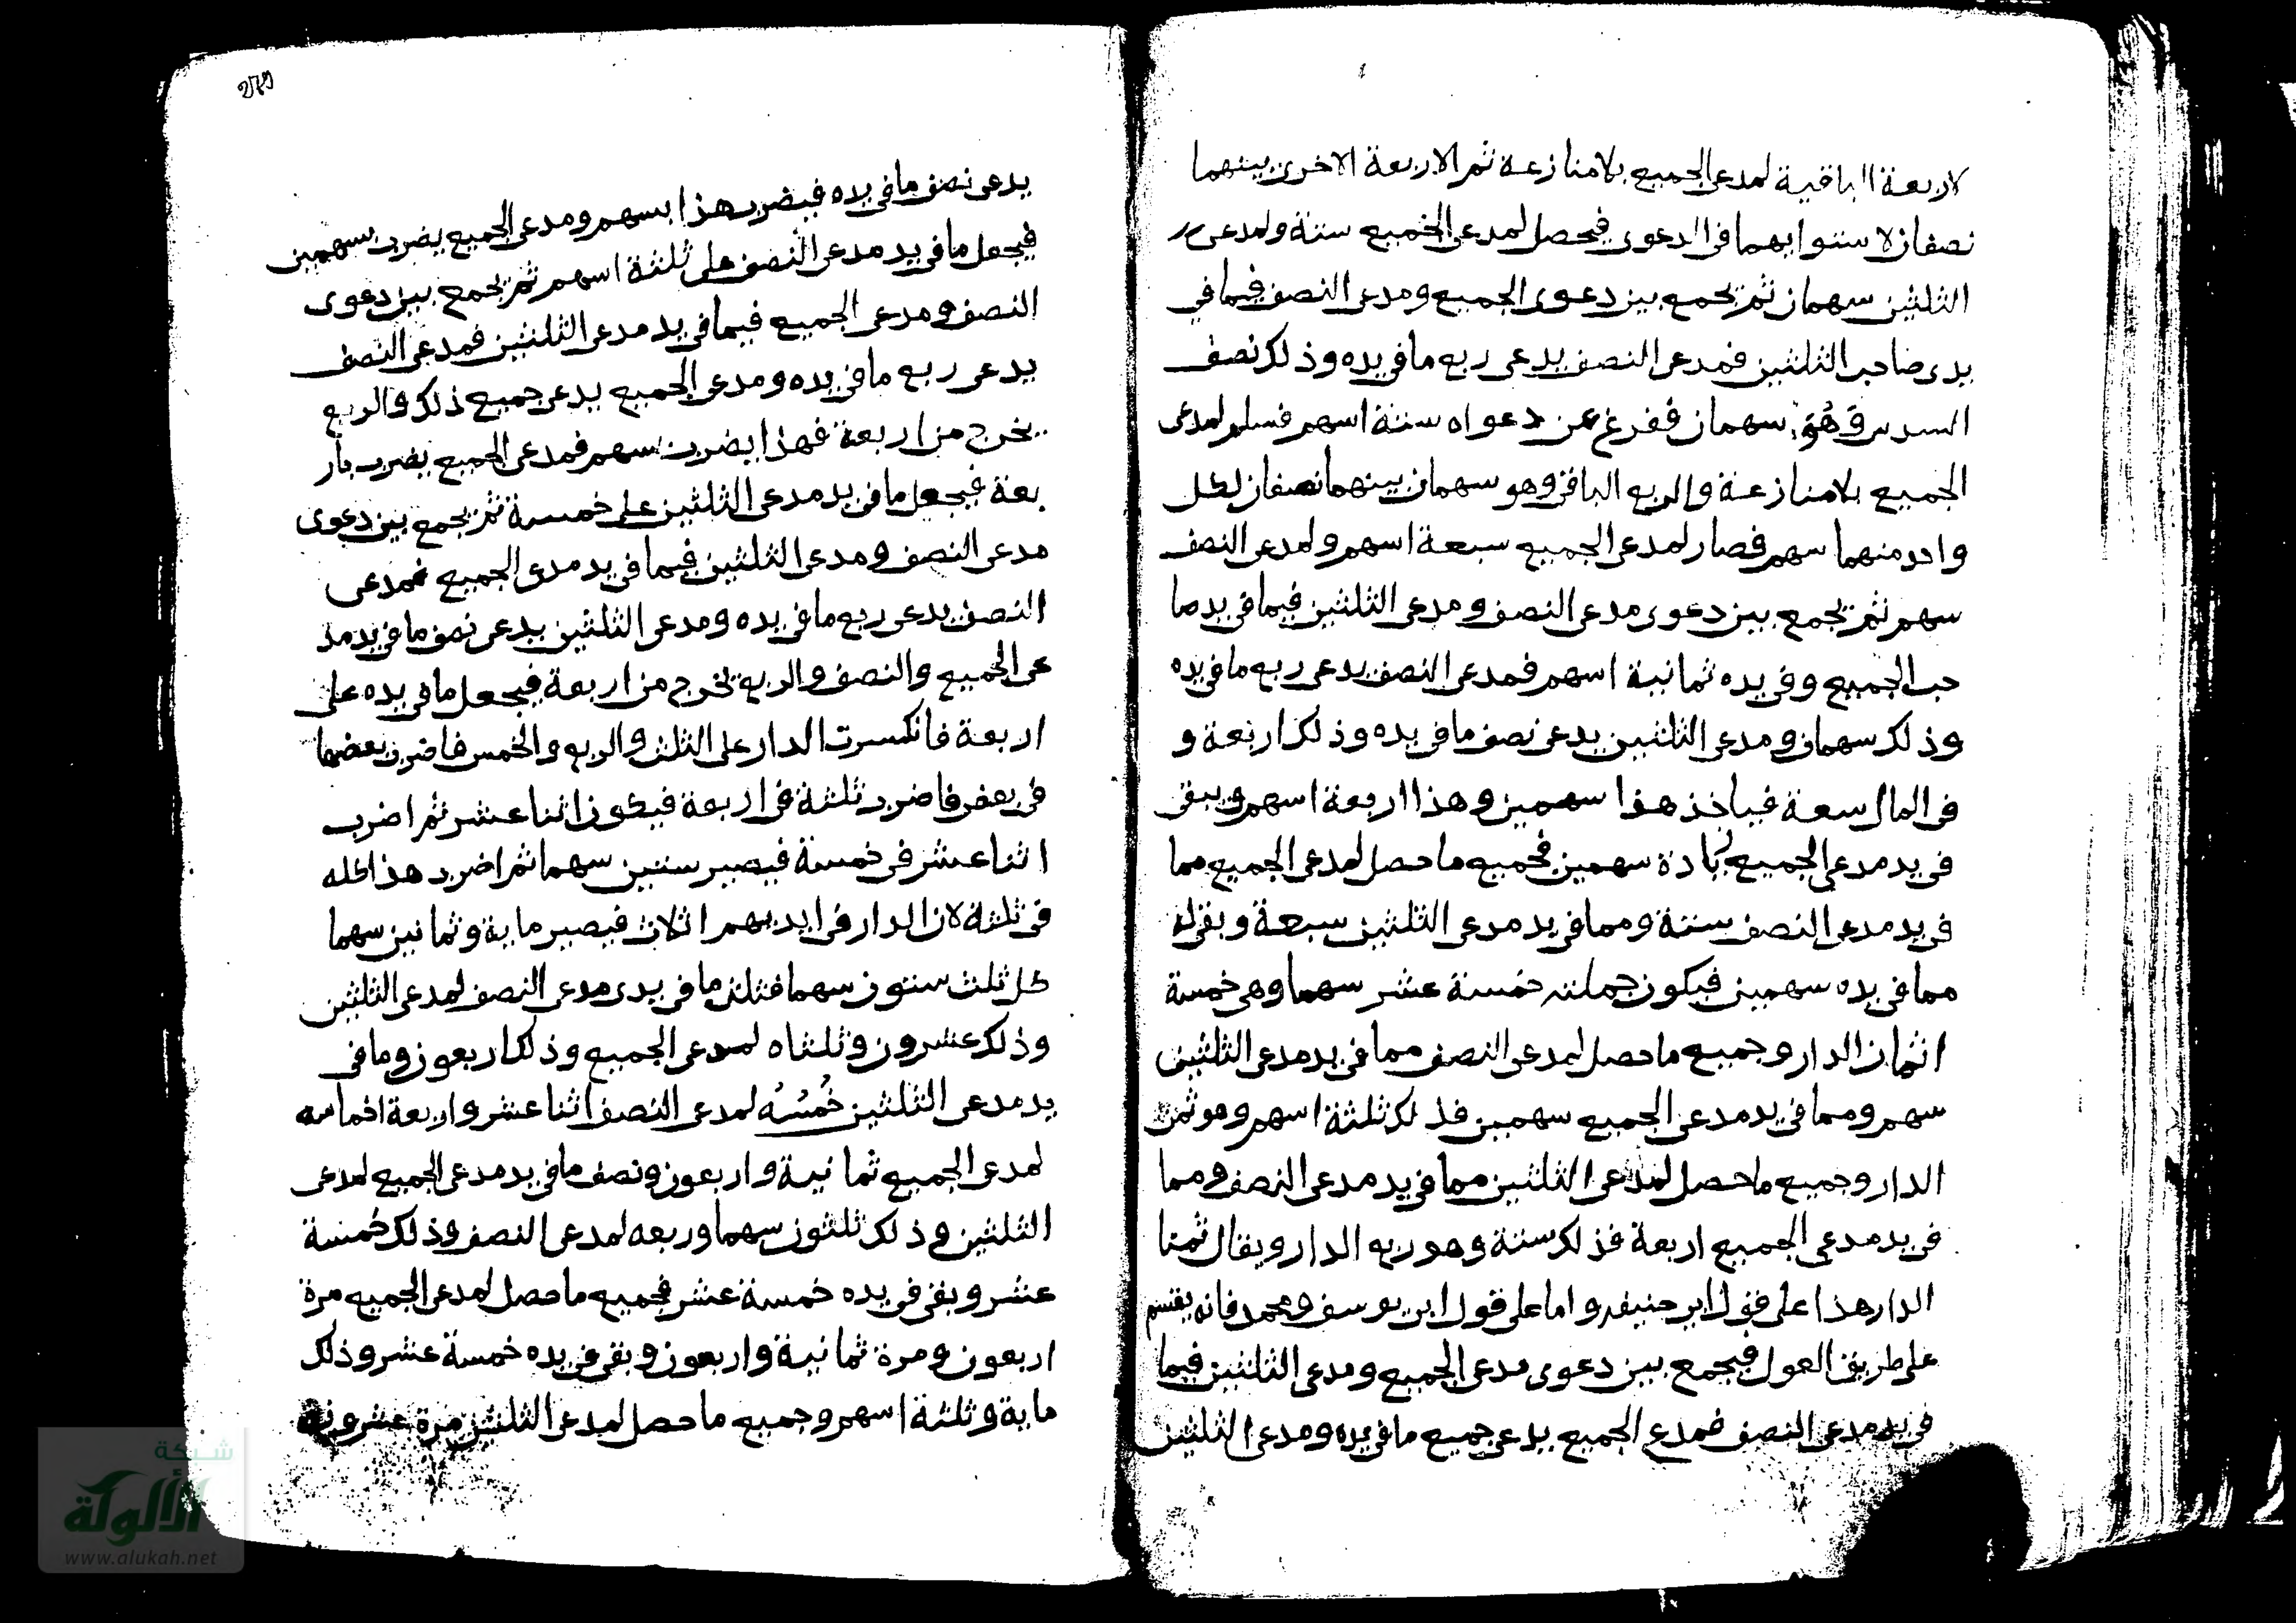 لاربعة الباقية لمدعى الجميع بلا منازعة ثم الاربعة الاخرى بينهما
نصفان لاستوايهما فى الدعوى فيحصل لمدعى الجميع ستة ولمدعى
الثلثين سهمان ثم يجمع بين دعوى الجميع ومدعى النصف فيما فى
يدى صاحب الثلثين فمدعى النصف يدعى ربع ما فى يده وذلك نصف
السدس وهو سهمان ففرغ عن دعواه ستة اسهم فسلم لمدعى
الجميع بلا منازعة والربع الباقى وهو سهمان بينهما نصفان لكل
واحد منهما سهم فصار لمدعى الجميع سبعة اسهم ولمدعى النصف
سهم ثم يجمع بين دعوى مدعى النصف ومدعى الثلثين فيما فى يد صا
حب الجميع وفى يده ثمانية اسهم فمدعى النصف يدعى ربع ما فى يده
وذلك سهمان ومدعى الثلثين يدعى نصف ما فى يده وذلك اربعة و
فى المال سعة فياخذ هذا سهمين وهذا اربعة اسهم ويبقى
فى يد مدعى الجميع سهمين فجميع ما حصل لمدعى الجميع مما
فى يد مدعى النصف ستة ومما فى يد مدعى الثلثين سبعة وبقى له
مما فى يده سهمين فيكون جملته خمسة عشر سهما وهى خمسة
اثمان الدار وجميع ما حصل لمدعى النصف مما فى يد مدعى الثلثين
سهم ومما فى يد مدعى الجميع سهمين فذلك ثلثة اسهم وهو ثمن
الدار وجميع ما حصل لمدعى الثلثين مما فى يد مدعى النصف ومما
فى يد مدعى الجميع اربعة فذلك ستة وهو ربع الدار ويقال ثمنا
الدار هذا على قول ابى حنيفه واما على قول ابى يوسف ومحمد فانه يقسم
على طريق العول فيجمع بين دعوى مدعى الجميع ومدعى الثلثين فيما
فى يد مدعى النصف فمدعى الجميع يدعى جميع ما فى يده ومدعى الثلثين
279
يدعى نصف ما فى يده فيضرب هذا بسهم ومدعى الجميع يضرب بسهمين
فيجعل ما فى يد مدعى النصف على ثلثة اسهم ثم يجمع بين دعوى
النصف ومدعى الجميع فيما فى يد مدعى الثلثين فمدعى النصف
يدعى ربع ما فى يده ومدعى الجميع يدعى جميع ذلك والربع
يخرج من اربعة فهذا يضرب بسهم فمدعى الجميع يضرب بار
بعة فيجعل ما فى يد مدعى الثلثين على خمسة ثم يجمع بين دعوى
مدعى النصف ومدعى الثلثين فيما فى يد مدعى الجميع فمدعى
النصف يدعى ربع ما فى يده ومدعى الثلثين يدعى نصف ما فى يد مد
عى الجميع والنصف والربع يخرج من اربعة فيجعل ما فى يده على
اربعة فانكسرت الدار على الثلث والربع والخمس فاضرب بعضها
فى بعض فاضرب ثلثة فى اربعة فيكون اثنا عشر ثم اضرب
اثنا عشر فى خمسة فيصير ستين سهما ثم اضرب هذا كله
فى ثلثة لان الدار فى ايديهم اثلاث فيصير ماية وثمانين سهما
كل ثلث ستون سهما فثلث ما فى يدى مدعى النصف لمدعى الثلثين
وذلك عشرون وثلثاه لمدعى الجميع وذلك اربعون وما فى
يد مدعى الثلثين خُمْسُهُ لمدعى النصف اثنا عشر واربعة اخماسه
لمدعى الجميع ثمانية واربعون ونصف ما فى يد مدعى الجميع لمدعى
الثلثين وذلك ثلثون سهما وربعه لمدعى النصف وذلك خمسة
عشر وبقى فى يده خمسة عشر فجميع ما حصل لمدعى الجميع مرة
اربعون ومرة ثمانية واربعون وبقى فى يده خمسة عشر وذلك
ماية وثلثة اسهم وجميع ما حصل لمدعى الثلثين مرة عشرون
شبكة
الألوكة
www.alukah.net